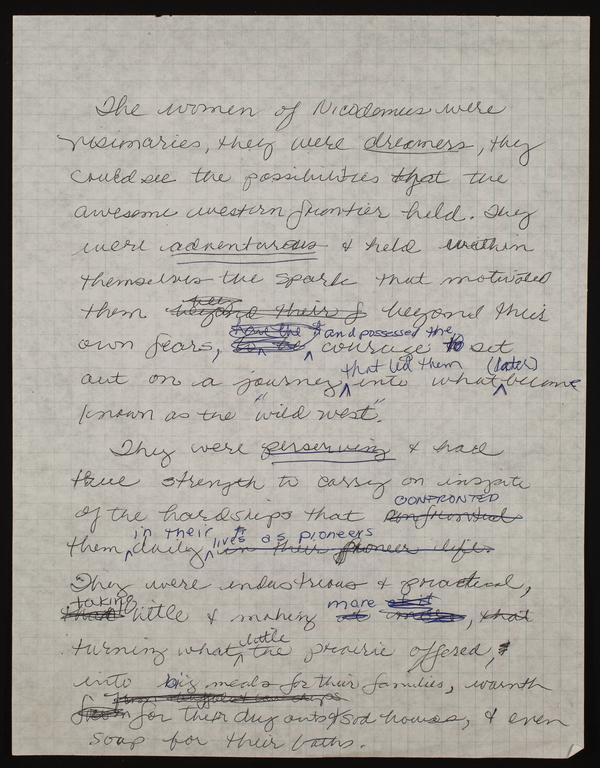 The women of Nicodemus were
visionaries, they were dreamers, they
could see the possibilities that the
awesome western frontier held. They
were adventurous & held within
themselves the spark that motivated
them beyond their beyond their
have the & and possessed the
own fears, courage to set
that led them (later)
out on a journey into what became
known as the "wild west".
They were perserving & had
true strength to carry on inspite
CONFRONTED
of the hardships that confronted
in their lives as pioneers
them daily in their pioneer life.
They were industrious & practical,
taking more
little & making , that
little
turning what the prairie offered,
into big meals for their families, warmth
from buffalo & cow chips
for their dug outs & sod houses, & even
soap for their baths.